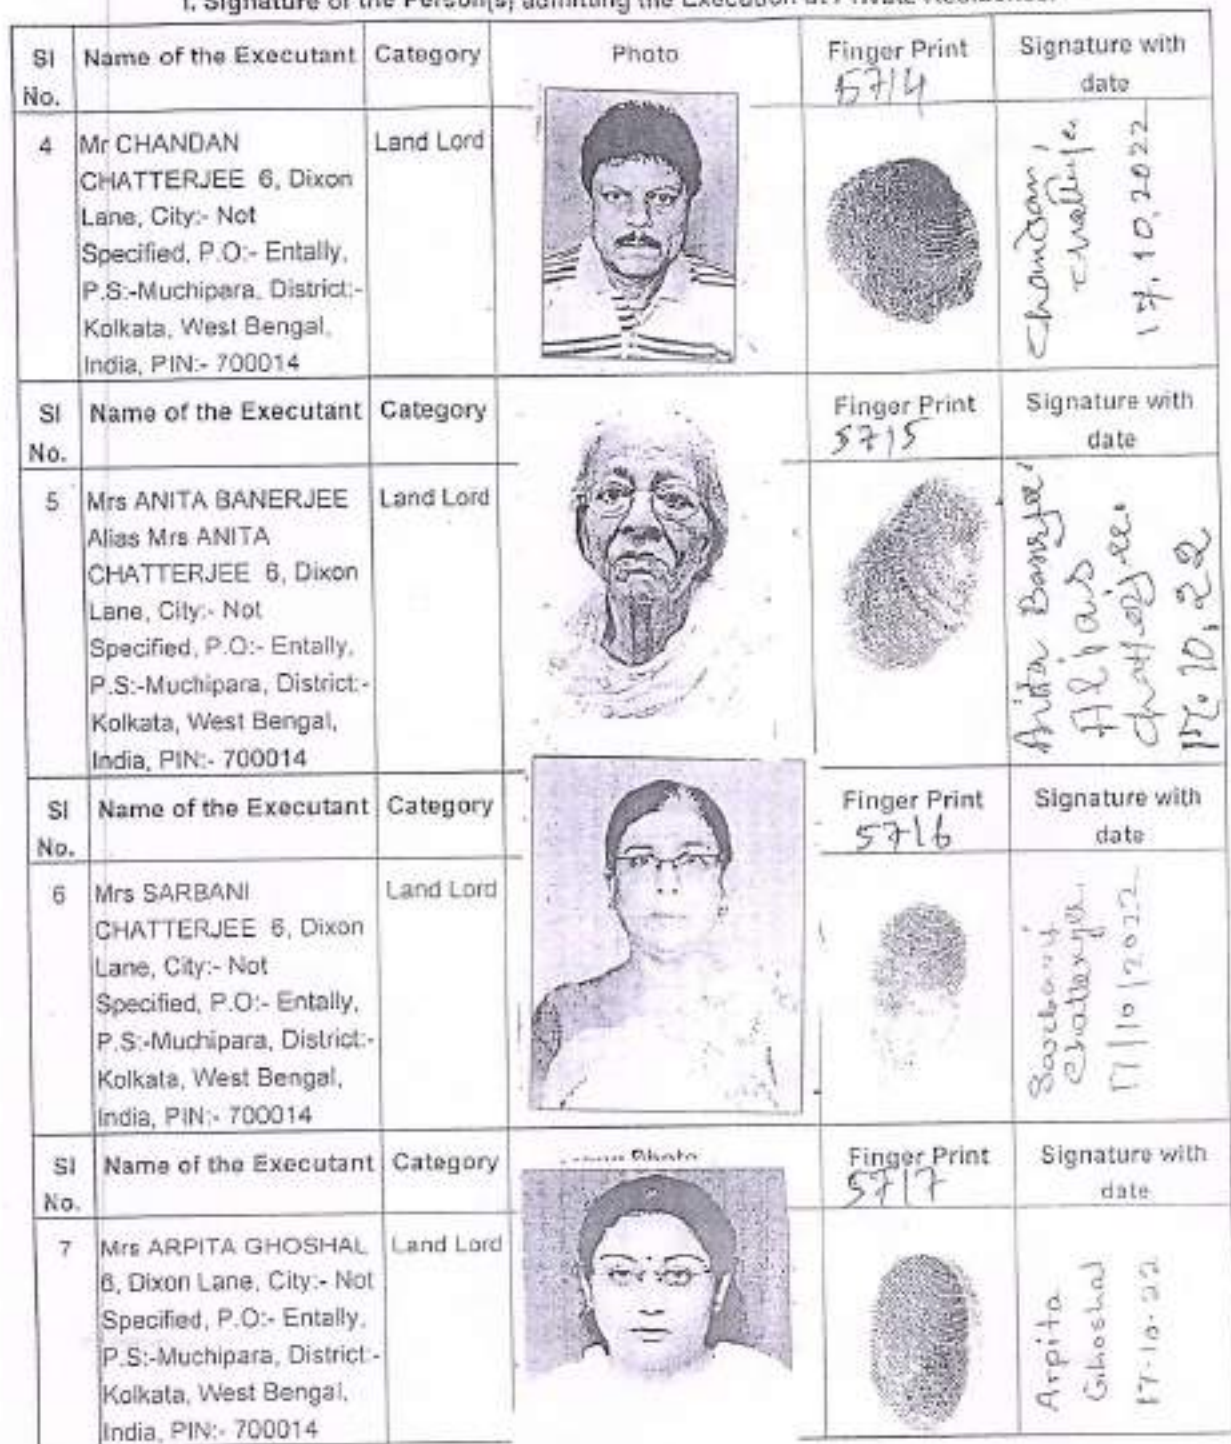 I. Signature of the Person(s) admitting the Execution at Private Residence.
Sl No. Name of the Executant Category Photo Finger Print Signature with date
5714
4 Mr CHANDAN Land Lord
CHATTERJEE 6, Dixon
Lane, City:- Not
Specified, P.O:- Entally,
P.S:-Muchipara, District:-
Kolkata, West Bengal,
India, PIN:- 700014
Chandan
Chatterjee
17.10.2022
Sl No. Name of the Executant Category Finger Print Signature with date
5715
5 Mrs ANITA BANERJEE Land Lord
Alias Mrs ANITA
CHATTERJEE 6, Dixon
Lane, City:- Not
Specified, P.O:- Entally,
P.S:-Muchipara, District:-
Kolkata, West Bengal,
India, PIN:- 700014
Anita Banerjee
Alias
Chatterjee.
17.10.22
Sl No. Name of the Executant Category Finger Print Signature with date
5716
6 Mrs SARBANI Land Lord
CHATTERJEE 6, Dixon
Lane, City:- Not
Specified, P.O:- Entally,
P.S:-Muchipara, District:-
Kolkata, West Bengal,
India, PIN:- 700014
Sarbani
Chatterjee
17/10/2022
Sl No. Name of the Executant Category Photo Finger Print Signature with date
5717
7 Mrs ARPITA GHOSHAL Land Lord
6, Dixon Lane, City:- Not
Specified, P.O:- Entally,
P.S:-Muchipara, District:-
Kolkata, West Bengal,
India, PIN:- 700014
Arpita
Ghoshal
17-10-22